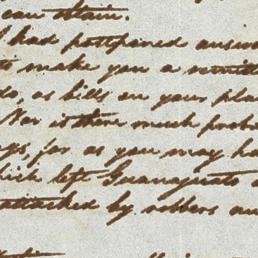 can obtain.
I had postponed answ
to make you a remitt
do, as bills on your pla
Nor is there much prob
for as you may ha
which left Guanajuato
attacked by robbers an